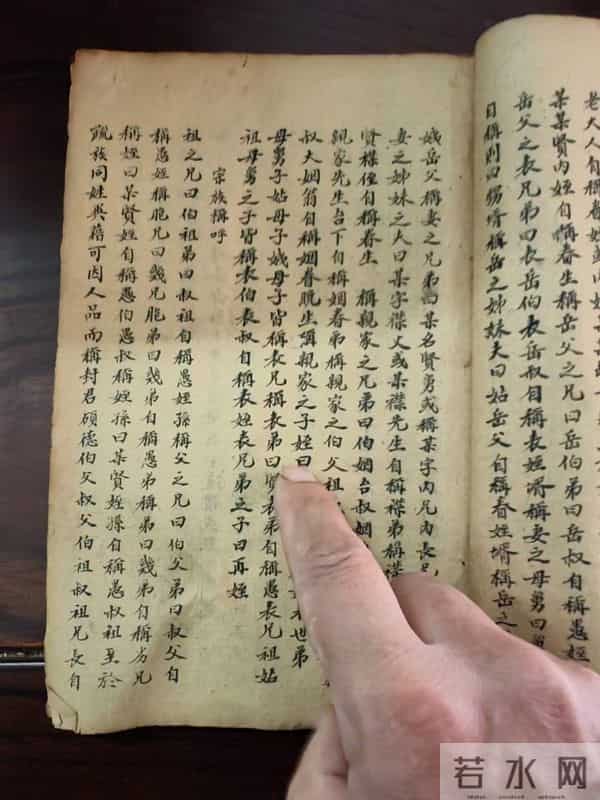 老大人自稱
某某賢內姪自稱眷生稱岳父之兄曰岳伯弟曰岳叔自稱愚姪
岳父之表兄弟曰表岳伯表岳叔自稱表姪壻稱妻之母舅曰
自稱則曰甥壻稱岳之姊妹夫曰姑岳父自稱眷姪壻稱岳之
娥岳父稱妻之兄弟曰某名賢舅或稱某字內兄內表兄
妻之姊妹之夫曰某字襟丈或某襟先生自稱襟弟稱襟
賢襟侄自稱眷生 稱親家之兄弟曰伯姻台叔姻
親家先生台下自稱姻眷弟稱親家之伯父祖
叔夫姻翁自稱姻眷晚生稱親家之子姪曰
母舅子姑母子娥母子皆稱表兄稱表弟曰賢表弟自稱愚表兄祖姑
祖母舅之子皆稱表伯表叔自稱表姪表兄弟之子曰再姪
宗族稱呼
祖之兄曰伯祖弟曰叔祖自稱愚姪孫稱父之兄曰伯父弟曰叔父自
稱愚姪稱胞兄曰幾兄胞弟曰幾弟自稱愚弟稱弟曰幾弟自稱劣兄
稱姪曰某賢姪自稱愚伯愚叔稱姪孫曰某賢姪孫自稱愚叔祖至於
疏族同姓與藉可因人品而稱封君碩德伯父叔父伯祖叔祖兄長自
若水网